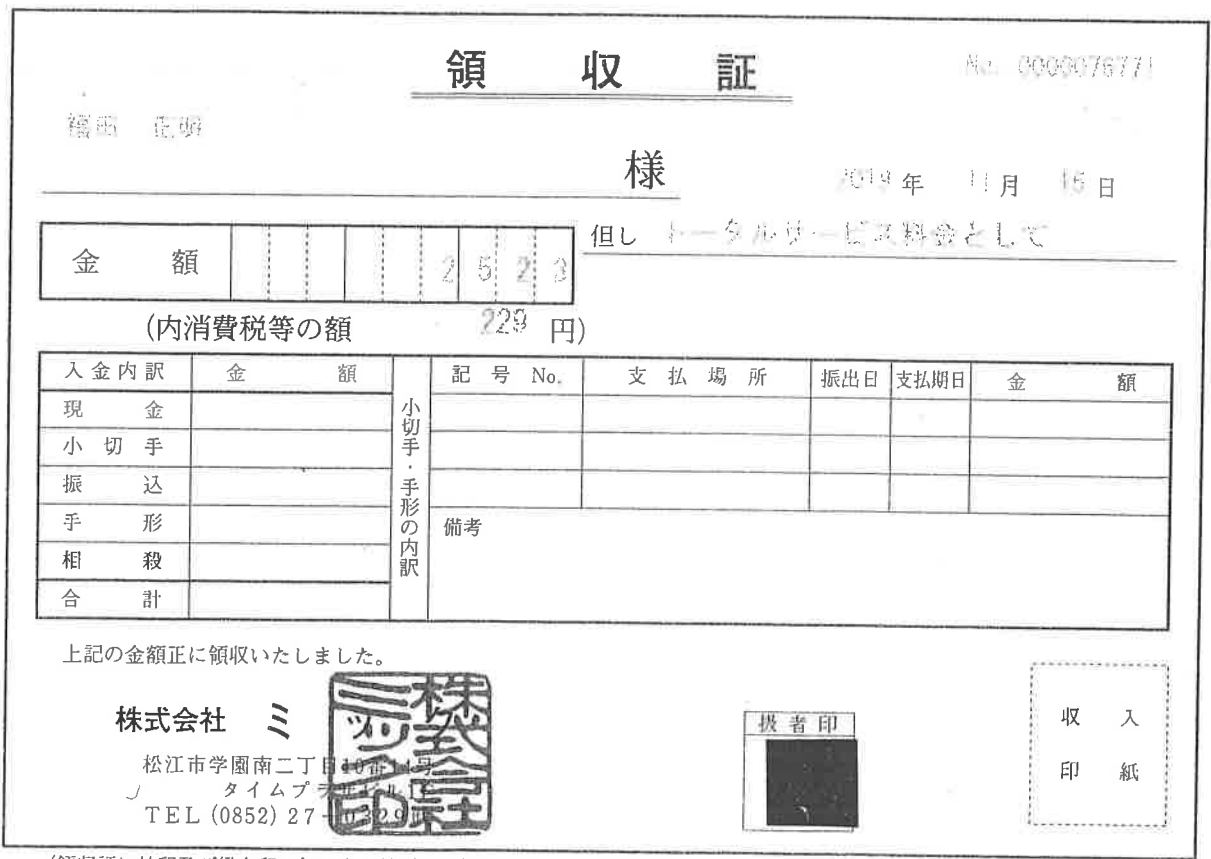 領収証
No. 0000076771
福田 正明
様
2019年 11月 15日
金額 2523
但し トータルサービス料金として
(内消費税等の額 229 円)
入金内訳 金額
現金
小切手
振込
手形
相殺
合計
小切手・手形の内訳
記号No. 支払場所 振出日 支払期日 金額
備考
上記の金額正に領収いたしました。
株式会社 ミ
株式会社ミック印
松江市学園南二丁目10番14号
タイムプラ
TEL (0852) 27-0329
扱者印
収入
印紙